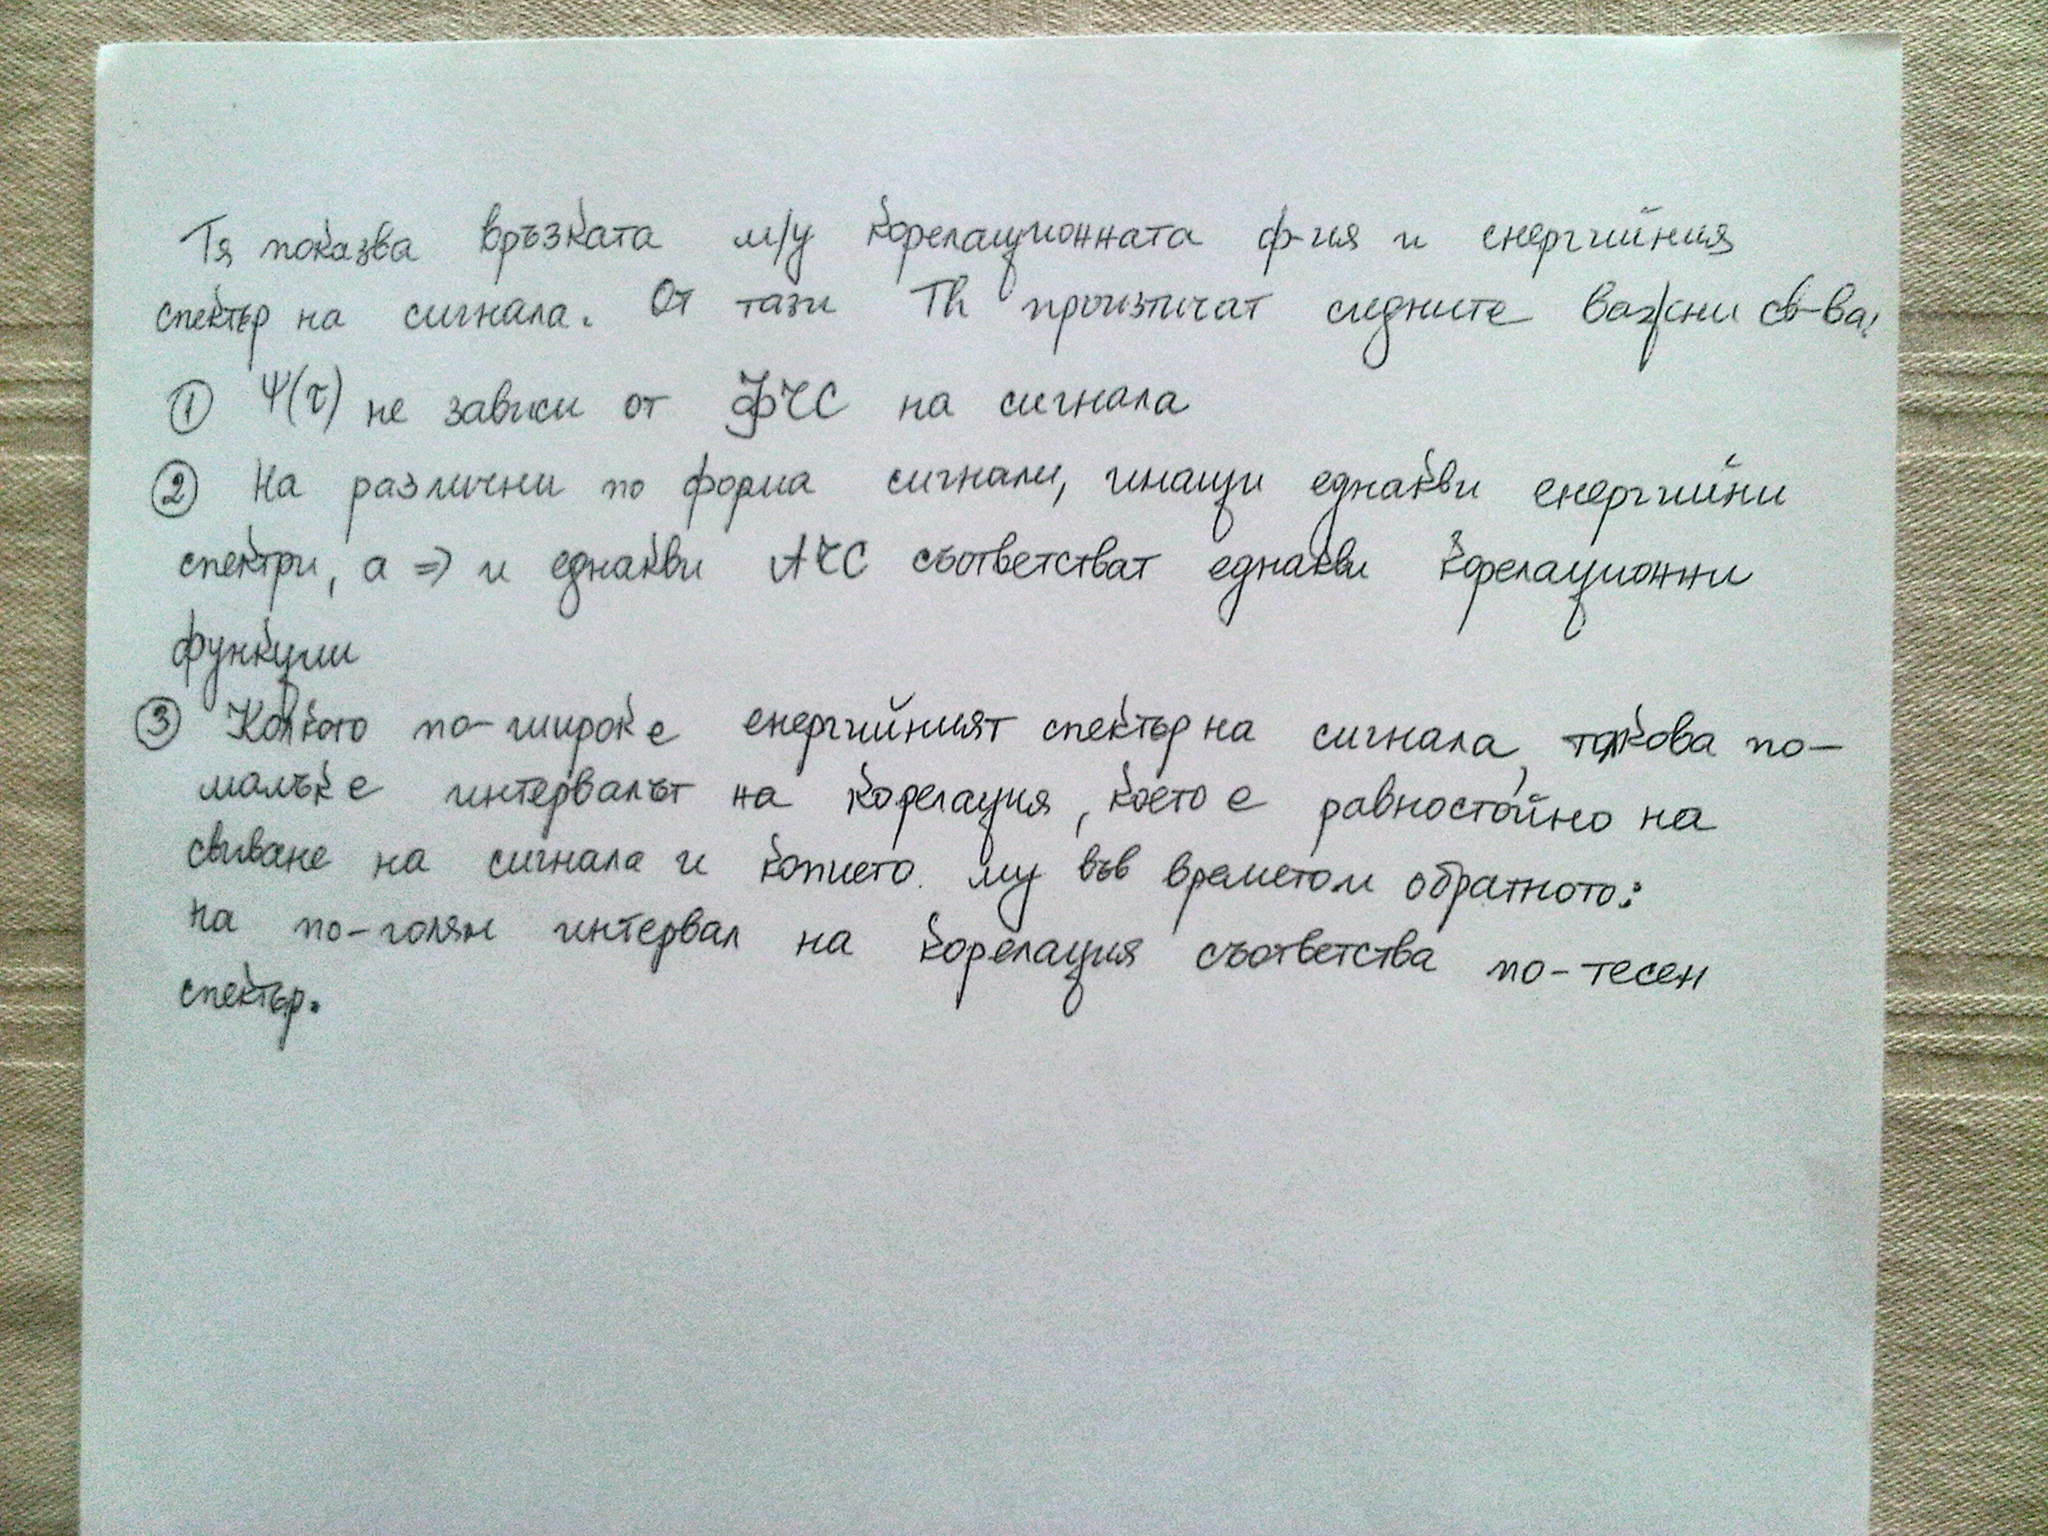 Тя показва връзката м/у корелационната ф-ия и енергийния
спектър на сигнала. От тази Th произтичат следните важни св-ва:
① Ψ(τ) не зависи от ФЧС на сигнала
② На различни по форма сигнали, имащи еднакви енергийни
спектри, а => и еднакви АЧС съответстват еднакви корелационни
функции
③ Колкото по-широк е енергийният спектър на сигнала, толкова по-
малък е интервалът на корелация, което е равностойно на
свиване на сигнала и копието му във времетои обратното:
на по-голям интервал на корелация съответства по-тесен
спектър.